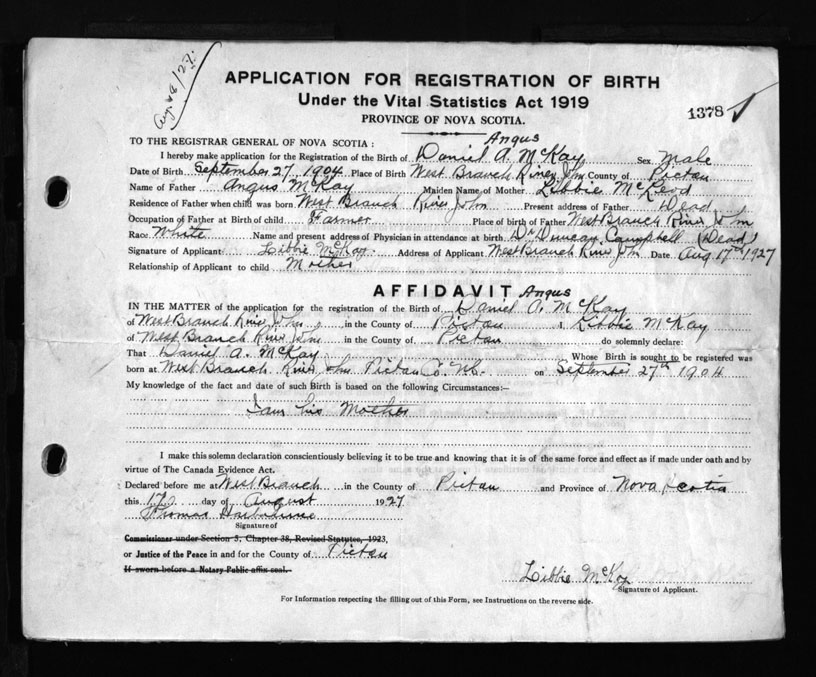 Aug. 18/27.
APPLICATION FOR REGISTRATION OF BIRTH
Under the Vital Statistics Act 1919
1378
PROVINCE OF NOVA SCOTIA.
TO THE REGISTRAR GENERAL OF NOVA SCOTIA:
Angus
I hereby make application for the Registration of the Birth of Daniel A. McKay Sex Male
Date of Birth September 27, 1904 Place of Birth West Branch River Jhn County of Pictou
Name of Father Angus McKay Maiden Name of Mother Libbie McLeod
Residence of Father when child was born West Branch River John Present address of Father Dead
Occupation of Father at Birth of child Farmer Place of birth of Father West Branch River Jhn
Race White Name and present address of Physician in attendance at birth Dr Duncan Campbell (Dead)
Signature of Applicant Libbie McKay. Address of Applicant West Branch River Jhn Date Aug 17th 1927
Relationship of Applicant to child Mother
AFFIDAVIT
Angus
IN THE MATTER of the application for the registration of the Birth of Daniel A. McKay
of West Branch River Jhn, in the County of Pictou I, Libbie McKay
of West Branch River Jhn in the County of Pictou do solemnly declare:
That Daniel A. McKay Whose Birth is sought to be registered was
born at West Branch River Jhn Pictou Co. N.S. on September 27th 1904
My knowledge of the fact and date of such Birth is based on the following Circumstances:—
I am his Mother
I make this solemn declaration conscientiously believing it to be true and knowing that it is of the same force and effect as if made under oath and by
virtue of The Canada Evidence Act.
Declared before me at West Branch in the County of Pictou and Province of Nova Scotia
this 17th day of August 1927
Thomas
Signature of
Commissioner under Section 5, Chapter 38, Revised Statutes, 1923,
or Justice of the Peace in and for the County of Pictou
If sworn before a Notary Public affix seal.
Libbie McKay
Signature of Applicant.
For Information respecting the filling out of this Form, see Instructions on the reverse side.